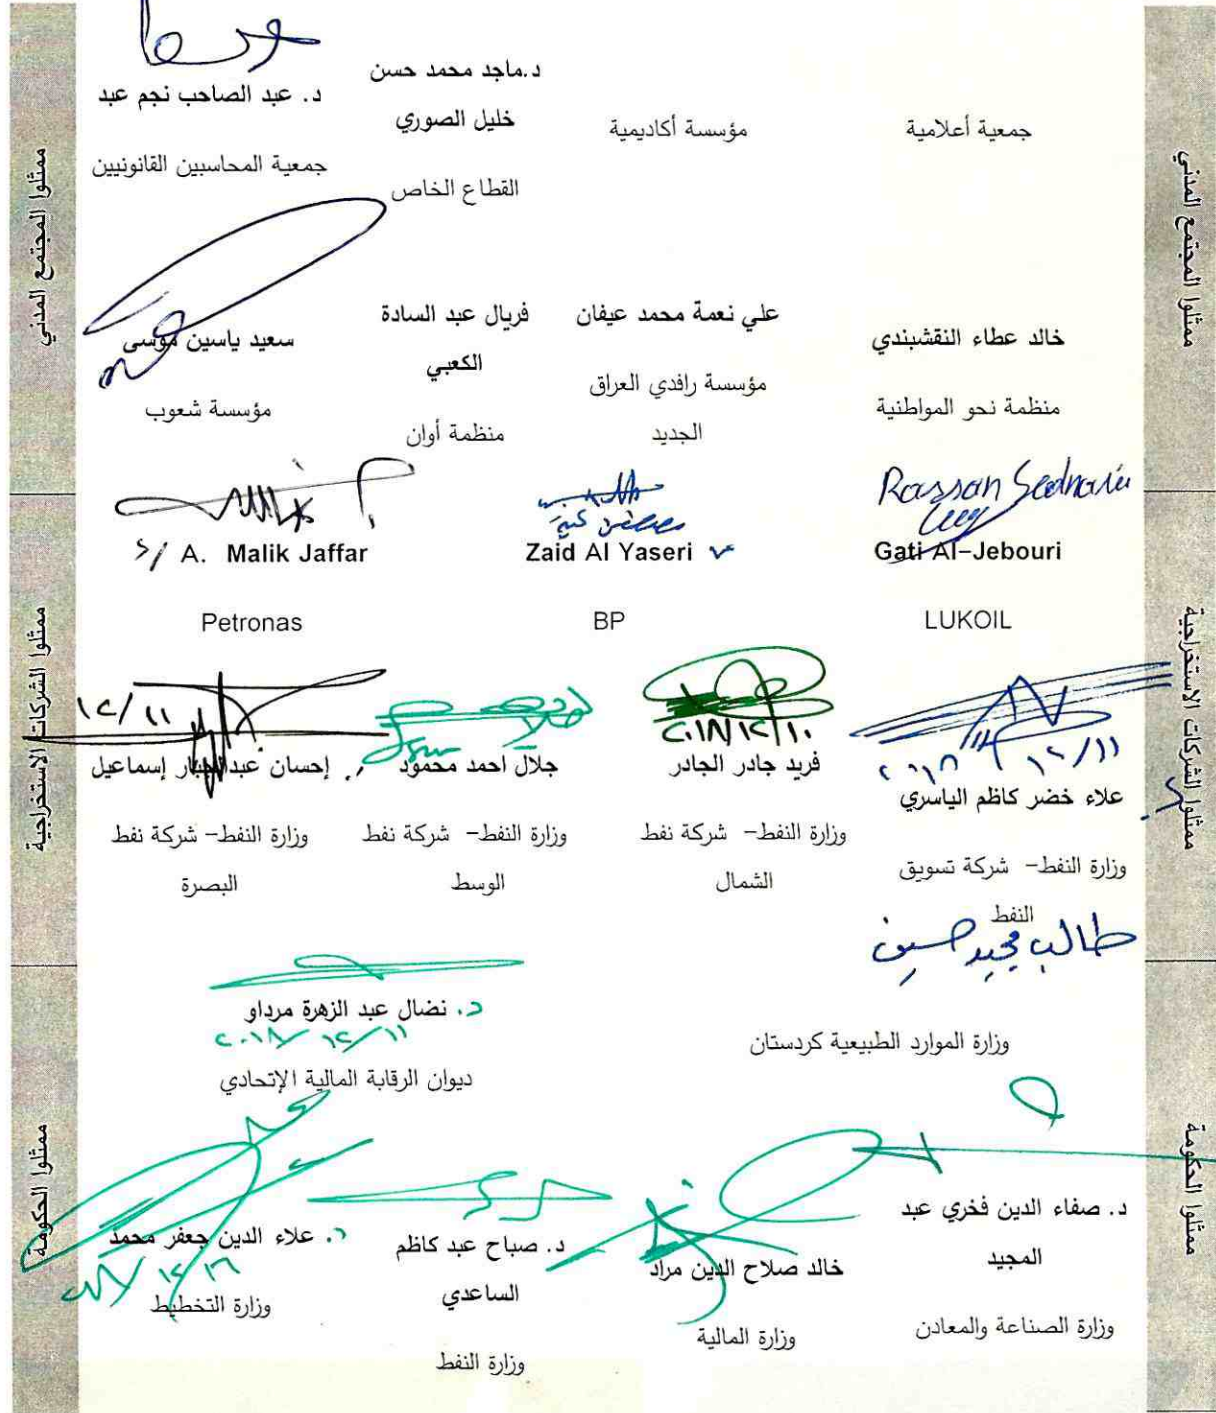 ممثلوا المجتمع المدني
جمعية أعلامية
مؤسسة أكاديمية
د.ماجد محمد حسن
خليل الصوري
القطاع الخاص
د. عبد الصاحب نجم عبد
جمعية المحاسبين القانونيين
ممثلوا المجتمع المدني
خالد عطاء النقشبندي
منظمة نحو المواطنية
علي نعمة محمد عيفان
مؤسسة رافدي العراق
الجديد
فريال عبد السادة
الكعبي
منظمة أوان
سعيد ياسين موسى
مؤسسة شعوب
ممثلوا الشركات الاستخراجية
Gati Al-Jebouri
LUKOIL
Zaid Al Yaseri
BP
A. Malik Jaffar
Petronas
ممثلوا الشركات الاستخراجية
٢٠١٨/١٢/١١
علاء خضر كاظم الياسري
وزارة النفط- شركة تسويق
النفط
طالب مجيد حسين
٢٠١٨/١٢/١٠
فريد جادر الجادر
وزارة النفط- شركة نفط
الشمال
جلال احمد محمود
وزارة النفط- شركة نفط
الوسط
١٢/١١
إحسان عبدالجبار إسماعيل
وزارة النفط- شركة نفط
البصرة
ممثلوا الحكومة
وزارة الموارد الطبيعية كردستان
د. نضال عبد الزهرة مرداو
٢٠١٨/١٢/١١
ديوان الرقابة المالية الإتحادي
ممثلوا الحكومة
د. صفاء الدين فخري عبد
المجيد
وزارة الصناعة والمعادن
خالد صلاح الدين مراد
وزارة المالية
د. صباح عبد كاظم
الساعدي
وزارة النفط
د. علاء الدين جعفر محمد
وزارة التخطيط